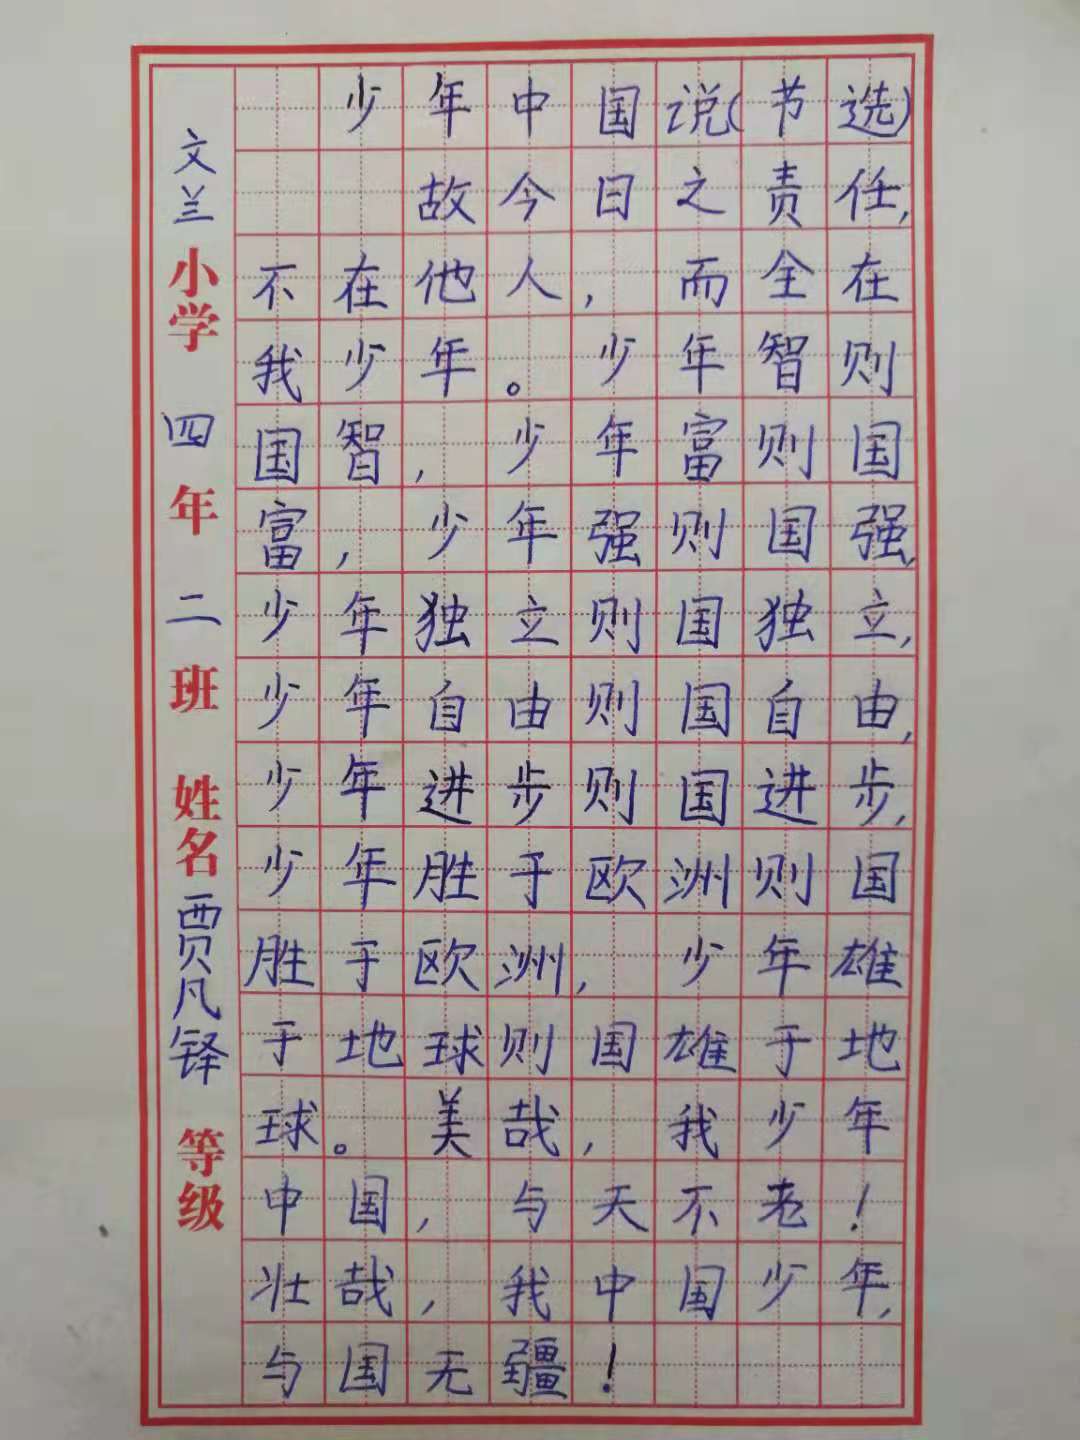 少年中国说(节选)
故今日之责任,
不在他人,而全在
我少年。少年智则
国智,少年富则国
富,少年强则国强,
少年独立则国独立,
少年自由则国自由,
少年进步则国进步,
少年胜于欧洲则国
胜于欧洲,少年雄
于地球则国雄于地
球。美哉,我少年
中国,与天不老!
壮哉,我中国少年,
与国无疆!
文兰小学 四年二班 姓名贾凡铎 等级